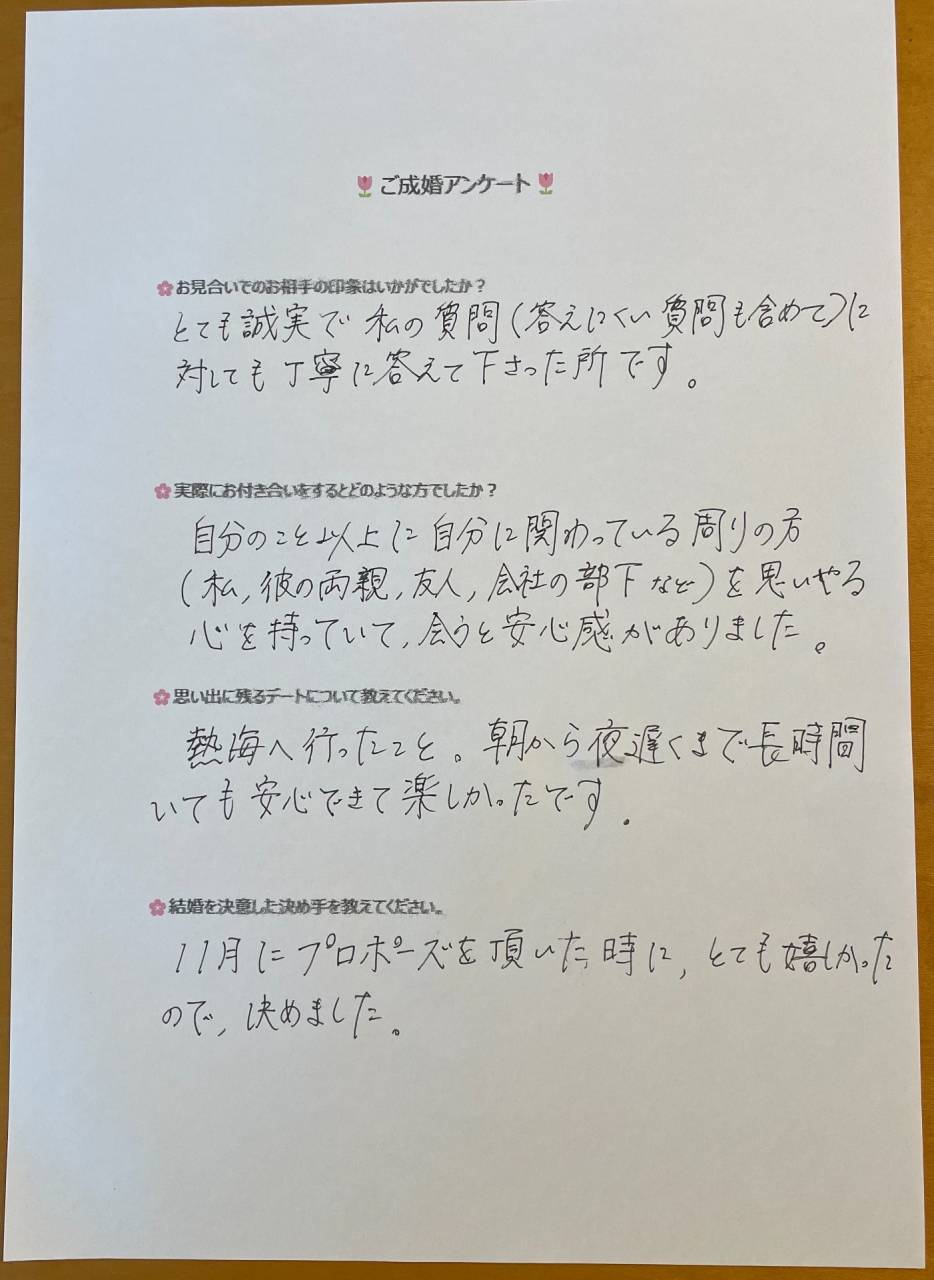 🌷ご成婚アンケート🌷
🌸お見合いでのお相手の印象はいかがでしたか？
とても誠実で私の質問(答えにくい質問も含めて)に
対しても丁寧に答えて下さった所です。
🌸実際にお付き合いをするとどのような方でしたか？
自分のこと以上に自分に関わっている周りの方
(私,彼の両親,友人,会社の部下など)を思いやる
心を持っていて,会うと安心感がありました。
🌸思い出に残るデートについて教えてください。
熱海へ行ったこと。朝から夜遅くまで長時間
いても安心できて楽しかったです.
🌸結婚を決意した決め手を教えてください。
11月にプロポーズを頂いた時に,とても嬉しかった
ので,決めました。